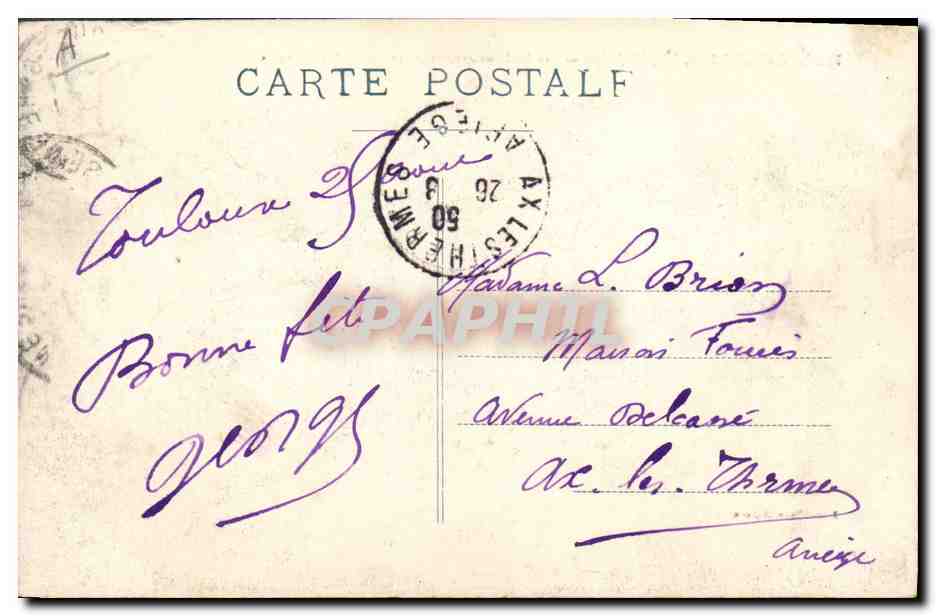 A
CARTE POSTALE
AX LES THERMES ARIEGE
26 8
30
Toulouse 25 aout
Bonne fete
Georges
Madame L. Brion
Maison Fournis
Avenue Delcassé
Ax. les. Thermes
Ariège
CPAPHIL